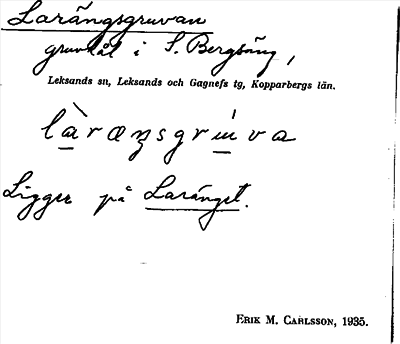 Larängsgruvan
gruvhål i S. Bergsäng,
Leksands sn, Leksands och Gagnefs tg, Kopparbergs län.
làræŋsgrúva
Ligger på Laränget.
ERIK M. CARLSSON, 1935.